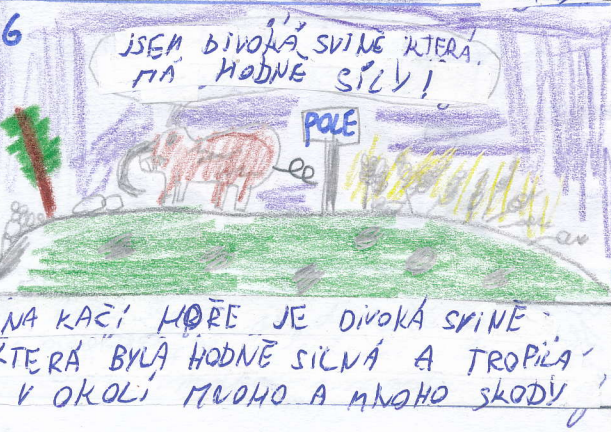 6
JSEM DIVOKÁ SVINĚ KTERÁ
MÁ HODNĚ SÍLY!
POLE
NA KAČÍ HOŘE JE DIVOKÁ SVINĚ
KTERÁ BYLA HODNĚ SILNÁ A TROPILA
V OKOLÍ MNOHO A MNOHO SKODY